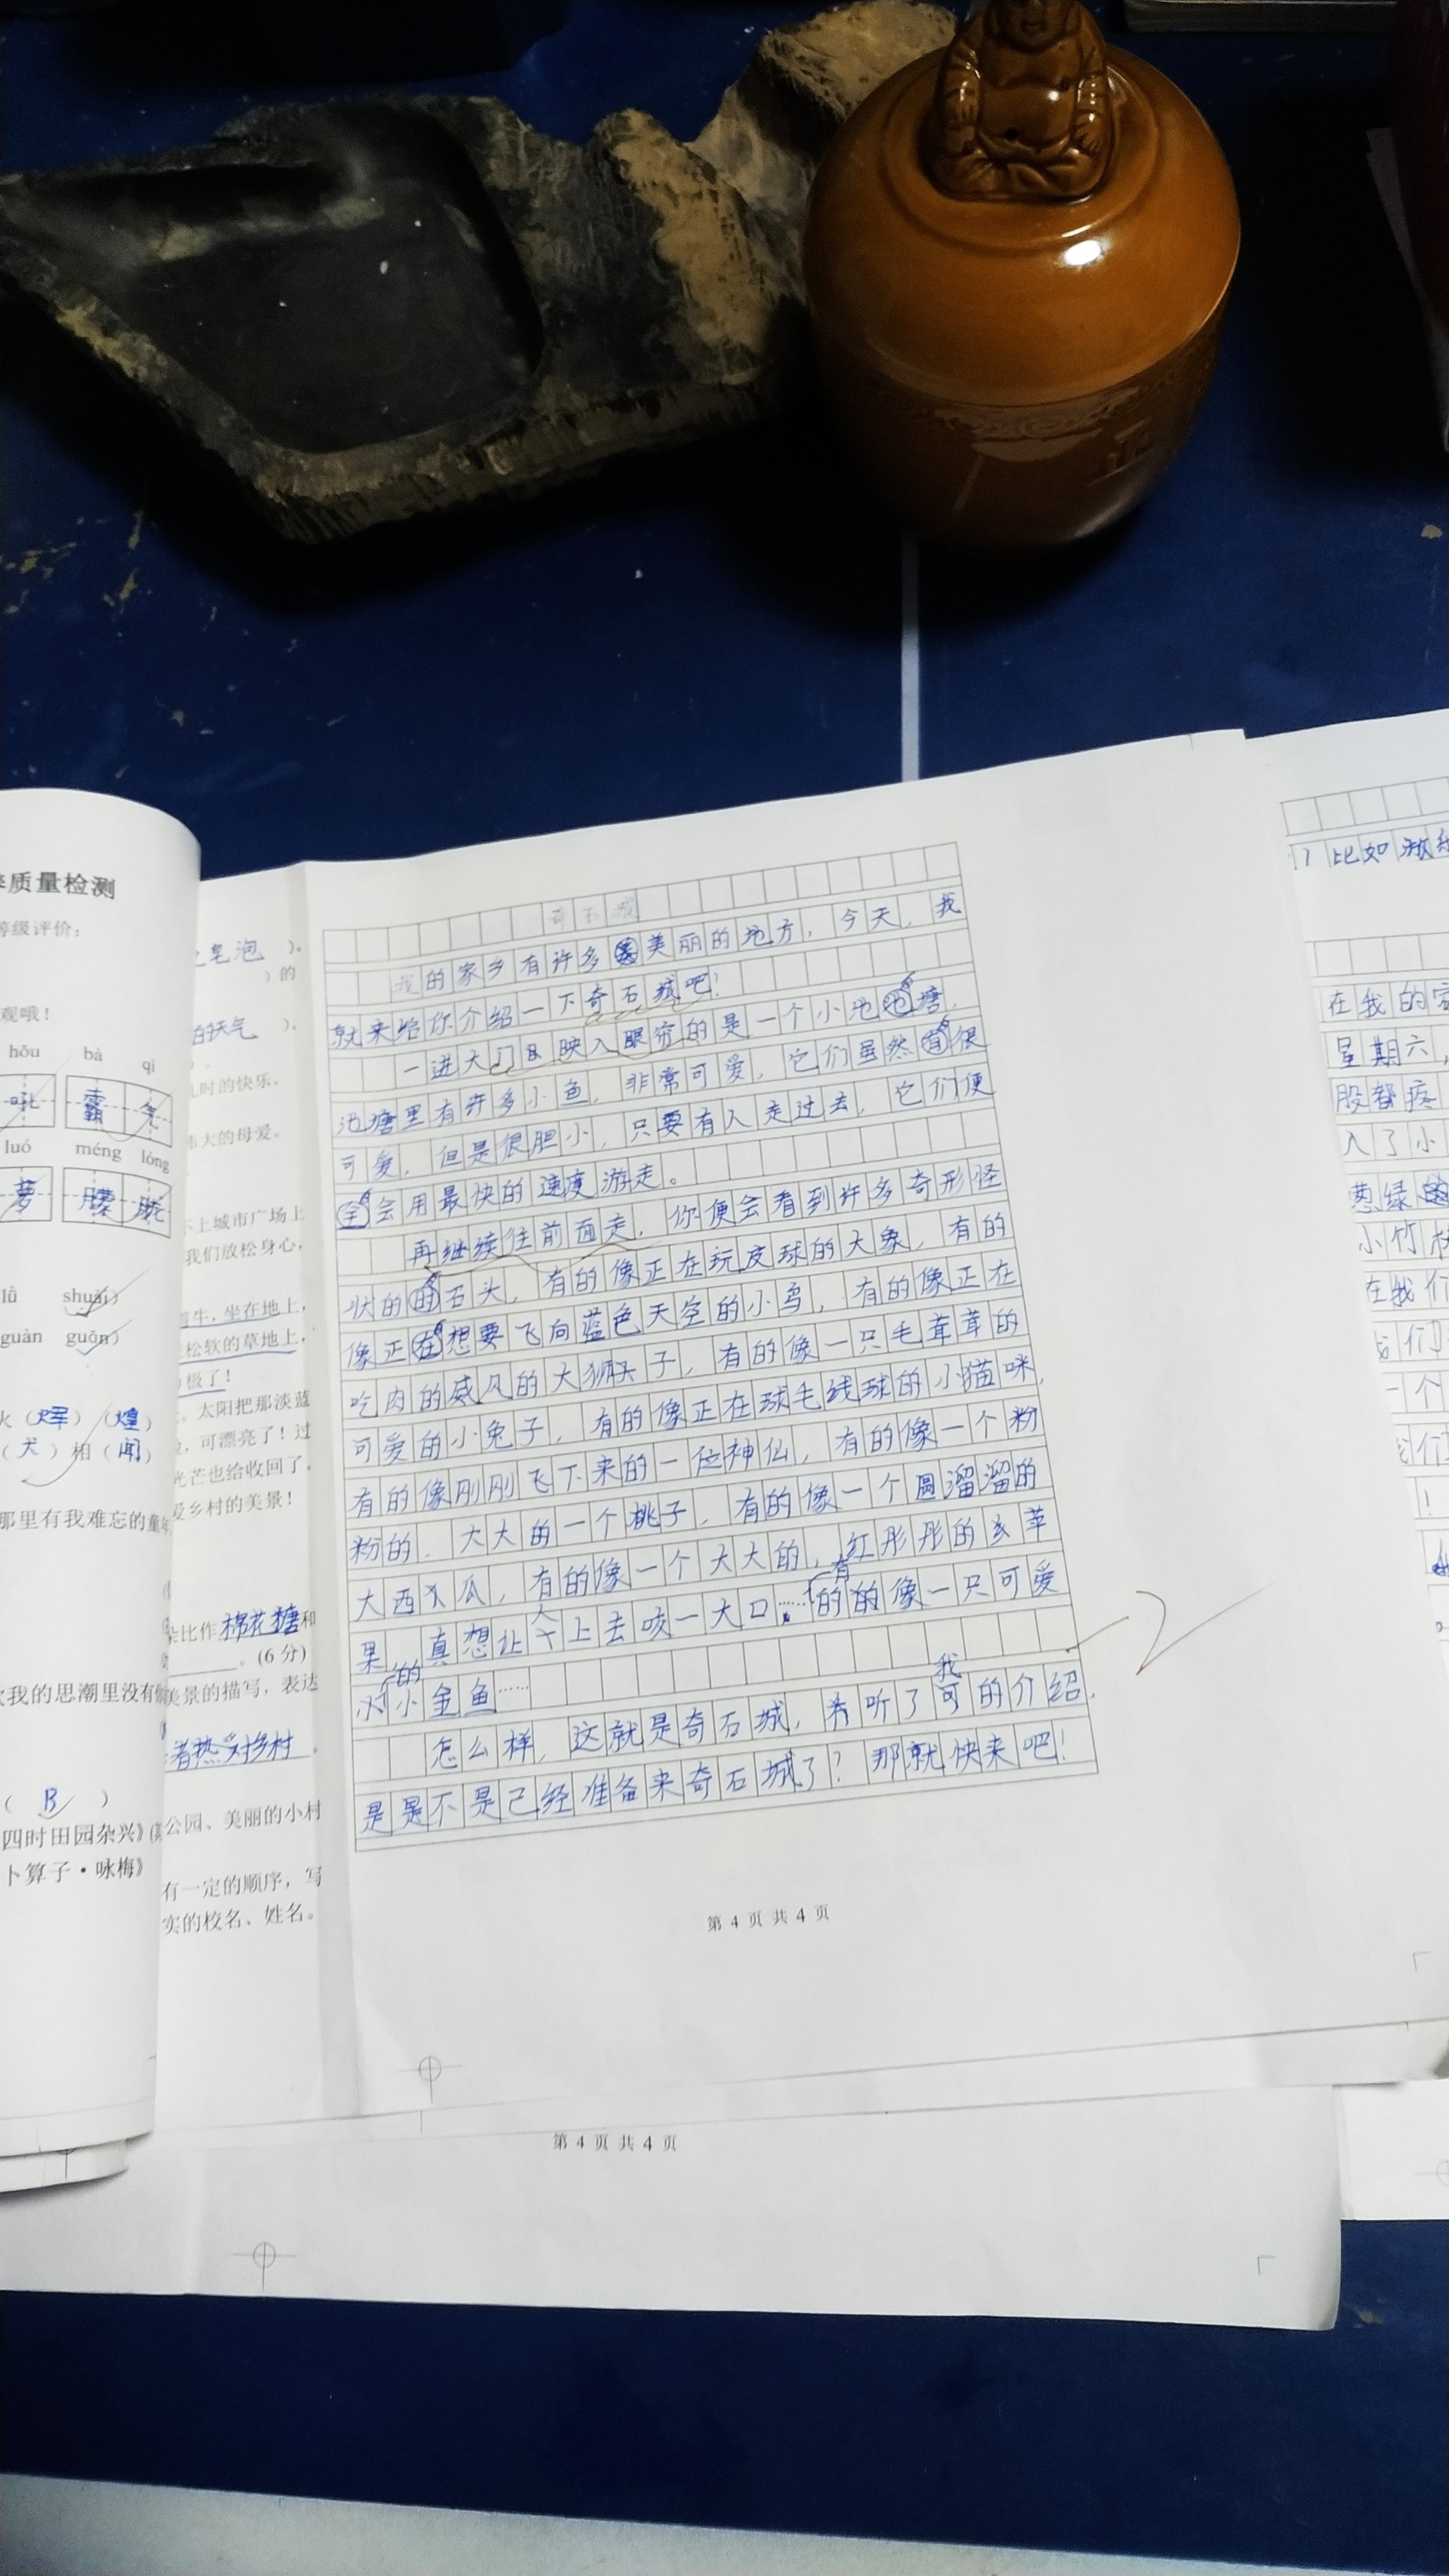 质量检测
等级评价：
观哦！
hǒu bà qì
吼 霸 气
luó méng lóng
萝 朦 胧
lǜ shuāi）
guàn guōn）
火（辉）（煌）
（犬）相（闻）
那里有我难忘的童年
（ B ）
四时田园杂兴》
卜算子·咏梅》
皂泡 ）。
）的
怕天气 ），
儿时的快乐。
伟大的母爱。
不上城市广场上
我们放松身心，
牛，坐在地上，
松软的草地上，
极了！
。太阳把那淡蓝
，可漂亮了！过
光芒也给收回了。
爱乡村的美景！
比作棉花糖和
。(6 分)
我的思潮里没有
美景的描写，表达
者热爱对乡村。
公园、美丽的小村
有一定的顺序，写
实的校名、姓名。
奇石城
我的家乡有许多美丽的地方，今天，我
就来给你介绍一下奇石城吧！
一进大门映入眼帘的是一个小池池塘，
池塘里有许多小鱼，非常可爱，它们虽然有很
可爱，但是很胆小，只要有人走过去，它们便
全会用最快的速度游走。
再继续往前面走，你便会看到许多奇形怪
状的的石头，有的像正在玩皮球的大象，有的
像正在想要飞向蓝色天空的小鸟，有的像正在
吃肉的威风的大狮子，有的像一只毛茸茸的
可爱的小兔子，有的像正在球毛线球的小猫咪，
有的像刚刚飞下来的一位神仙，有的像一个粉
粉的、大大的一个桃子，有的像一个圆溜溜的
大西瓜，有的像一个大大的，红彤彤的苹
果，真想让人上去咬一大口……有的的像一只可爱
的小金鱼……
怎么样，这就是奇石城，听了我的介绍，
是是不是已经准备来奇石城了？那就快来吧！
第 4 页 共 4 页
第 4 页 共 4 页
比如
在我的家
星期六，
股都疼
入了小
葱绿
小竹林
在我们
们
一个
们
！